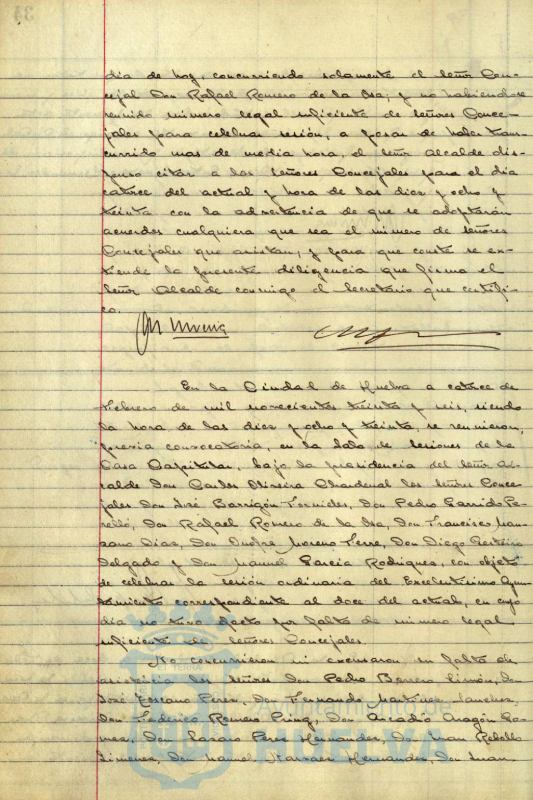 dia de hoy, concurriendo solamente el señor Con-
cejal Don Rafael Romero de la Osa, y no habiendose
reunido número legal suficiente de señores Conce-
jales para celebrar sesión, a pesar de haber trans-
currido mas de media hora, el señor Alcalde dis-
puso citar a los señores Concejales para el dia
catorce del actual y hora de las diez y ocho y
treinta con la advertencia de que se adoptarán
acuerdos cualquiera que sea el número de señores
Concejales que asistan, y para que conste se ex-
tiende la presente diligencia que firma el
señor Alcalde conmigo el Secretario que certifi-
co.
En la Ciudad de Huelva a catorce de
Febrero de mil novecientos treinta y seis, siendo
la hora de las diez y ocho y treinta, se reunieron,
previa convocatoria, en la Sala de Sesiones de la
Casa Capitular, bajo la presidencia del señor Al-
calde Don Carlos Oliveira Chardenal los señores Conce-
jales Don José Barrigón Fornieles, Don Pedro Garrido Pe-
relló, Don Rafael Romero de la Osa, Don Francisco Man-
zano Diaz, Don Onofre Moreno Ferre, Don Diego
Delgado y Don Manuel Garcia Rodriguez, con objeto
de celebrar la sesión ordinaria del Excelentisimo Ayun-
tamiento correspondiente al doce del actual, en cuyo
dia no tuvo efecto por falta de número legal
suficiente de señores Concejales.
No concurrieron ni excusaron su falta de
asistencia los señores Don Pedro Borrero Limón, Don
José Toscano Perez, Don Fernando Martinez Sanchez,
Don Federico Romero Don Arcadio Aragón Go-
mez, Don Lazaro Perez Hernandez, Don Juan Rebollo
Jimenez, Don Manuel Narvaez Hernandez, Don Juan
Ayuntamiento de
HUELVA